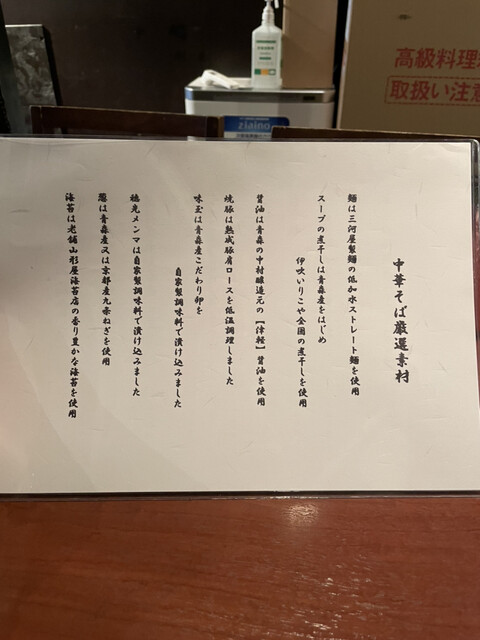 中華そば厳選素材
麺は三河屋製麺の低加水ストレート麺を使用
スープの煮干しは青森産をはじめ
伊吹いりこや全国の煮干しを使用
醤油は青森の中村醸造元の【津軽】醤油を使用
焼豚は熟成豚肩ロースを低温調理しました
味玉は青森産こだわり卵を
自家製調味料で漬け込みました
穂先メンマは自家製調味料で漬け込みました
葱は青森産又は京都産九条ねぎを使用
海苔は老舗山形屋海苔店の香り豊かな海苔を使用
ziaino
高級料理
取扱い注意